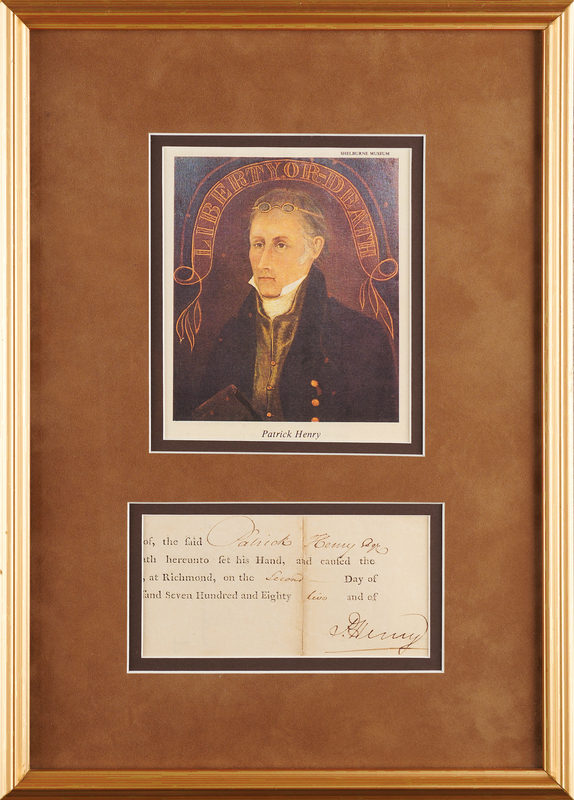 SHELBURNE MUSEUM
LIBERTY OR DEATH
Patrick Henry
of, the ſaid Patrick Henry Esqr
ath hereunto ſet his Hand, and cauſed the
, at Richmond, on the Second Day of
ſand Seven Hundred and Eighty and of
P. Henry